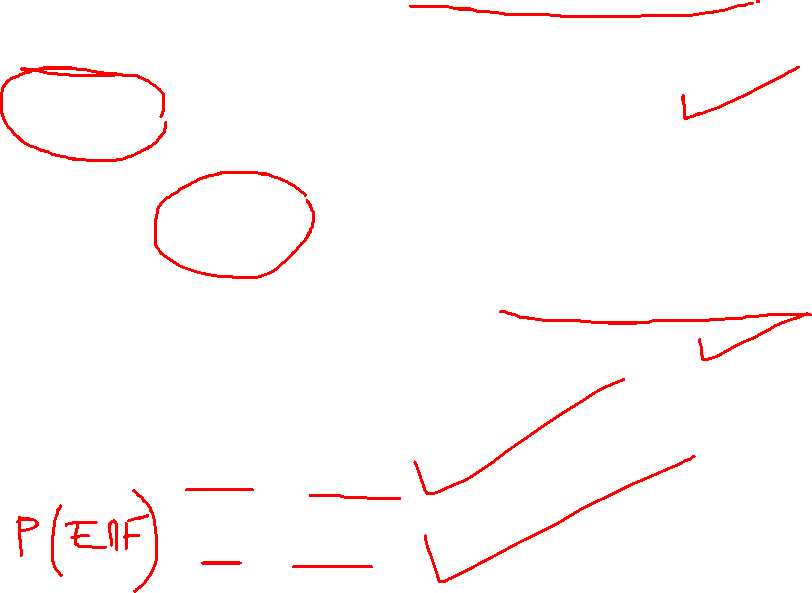 P(E∩F)